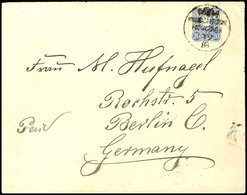 Frau M. Hufnagel
Rochstr. 5
Berlin C.
Germany